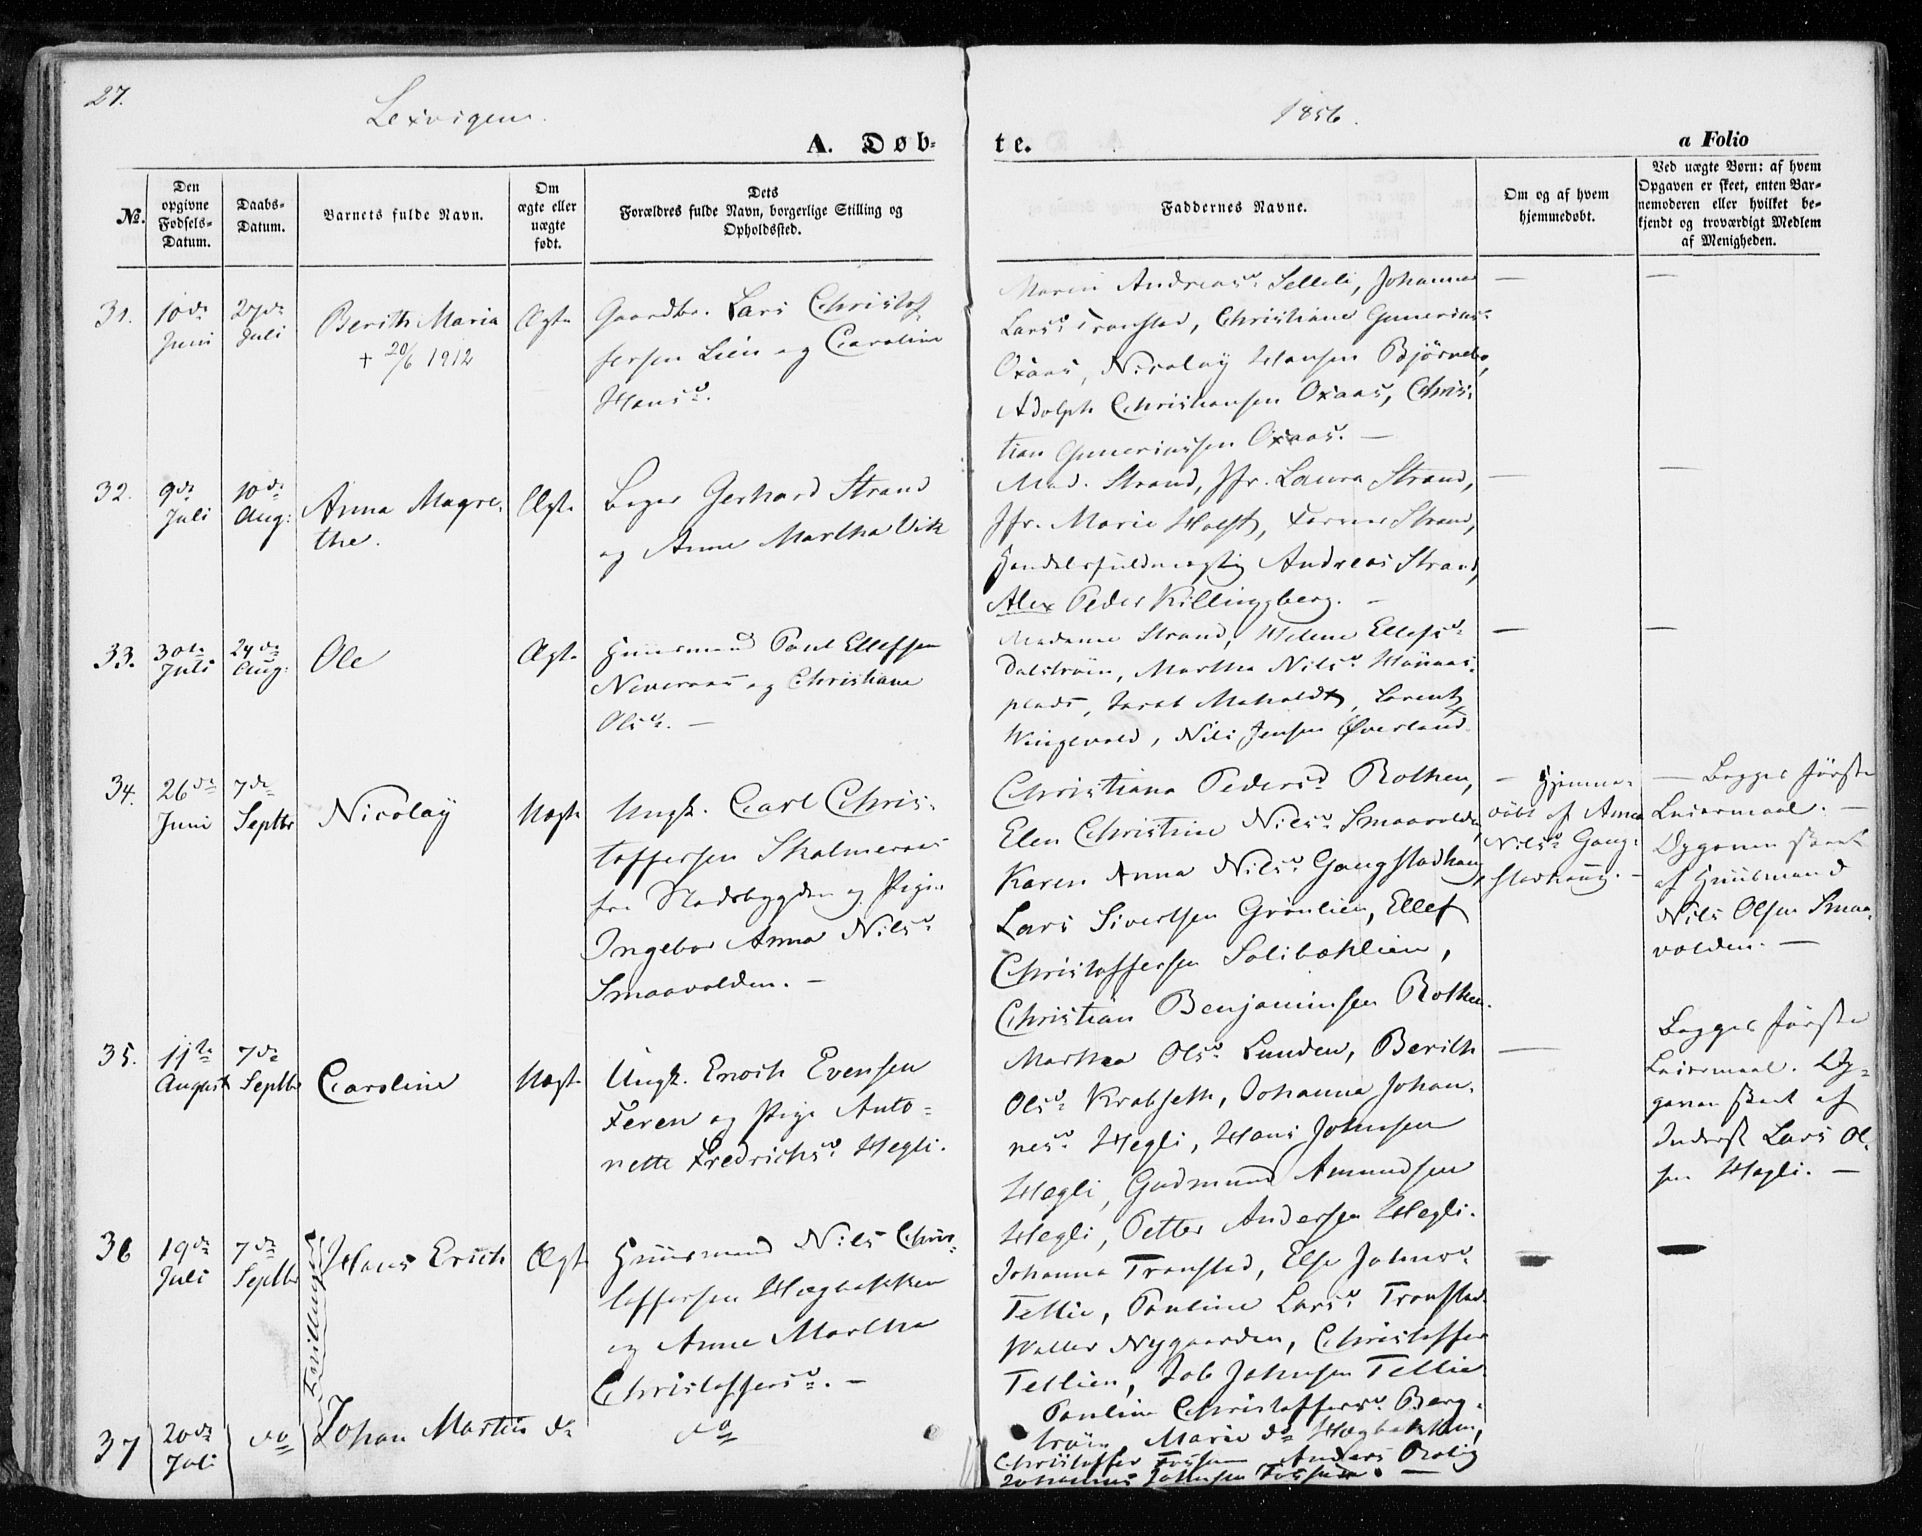 27.
Lexvigen.
1856.
A. Døb-
te.
a Folio
No.
Den
opgivne
Fødsels-
Datum.
Daabs-
Datum.
Barnets fulde Navn.
Om
ægte eller
uægte
født.
Dets
Forældres fulde Navn, borgerlige Stilling og
Opholdssted.
Faddernes Navne.
Om og af hvem
hjemmedøbt.
Ved uægte Børn: af hvem
Opgaven er skeet, enten Bar-
nemoderen eller hvilket be-
kjendt og troværdigt Medlem
af Menigheden.
31.
10de
Juni
27de
Juli
Berith Maria
+ 20/6 1912
Ægte
Gaardbr. Lars Christof-
fersen Lien og Caroline
Hansd.
Maren Andreasd. Selleli, Johanna
Larsd. Transtad, Christiane Gunerius-
Oxaas, Nicolay Hansen Bjørnebo,
Adolph Christiansen Oxaas, Chris-
tian Guneriussen Oxaas. —
—
—
32.
9de
Juli
10de
Aug:
Anna Magre-
the.
Ægte
Gerhard Strand
og Anne Martha Vik
Mad. Strand, Jfr. Laura Strand,
Jfr. Marie Holst, Strand,
Handelsfuldmægtig Andreas Strand,
Alex Peder Killingberg. —
—
—
33.
30te
Juli
24de
Aug:
Ole
Ægte
Huusmand Paul Ellefsen
Neveraas og Christiane
Olsd. —
Madame Strand, Helene Ellefsd.
Dalstrøen, Martha Nilsd.
plads, Lorentz
Wingevold, Nils Jensen Øverland
—
—
34.
26de
Juni
7de
Septbr
Nicolay
Uægte
Ungk. Carl Chris-
toffersen Skalmeraas
fra Stadsbygden og Pige
Ingebor Anna Nilsd.
Smaavolden. —
Christiana Pedersd Rothen,
Elen Christine Nilsd. Smaavolden,
Karen Anna Nilsd. Gangstadhaug,
Lars Sivertsen Grønlien, Ellef
Christoffersen Solibaklien,
Christian Benjaminsen Rothen.
— Hjemme-
døbt af Anna
Nilsd. Gang-
stadhaug. —
— Begges første
Leiermaal. —
Opgaven skeet
af Huusmand
Nils Olsen Smaa-
volden. —
35.
11te
August
7de
Septbr
Caroline
Uægte
Ungk. Enoch Evensen
Feren og Pige Anto-
nette Fredrichsd. Hegli.
Martha Olsd. Lunden, Berith
Olsd. Krabseth, Johanna Johan-
nesd. Hegli, Hans Johnsen
Hegli, Gudmund Amundsen
Hegli, Petter Andersen Hegli.
—
Begges første
Leiermaal. Op-
gaven skeet af
Inderst Lars Ol-
sen Hegli. —
36
19de
Juli
7de
Septbr
Tvillinger
Hans Erich
Ægte
Huusmand Nils Chris-
toffersen Hegbakken
og Anne Martha
Christoffersd. —
Johanna Transtad, Else Johnsd.
Tellie, Pauline Larsd. Transtad.
Walter Nygaarden, Christoffer
Tellien, Job Johnsen Tellie
—
—
37
20de
Juli
do
Johan Martin
do
do
Pauline Christoffersd. Berg-
trøen, Marie do Hegbakken,
Christoffer Fossum Anders
Johannes Johnsen Fossum. —